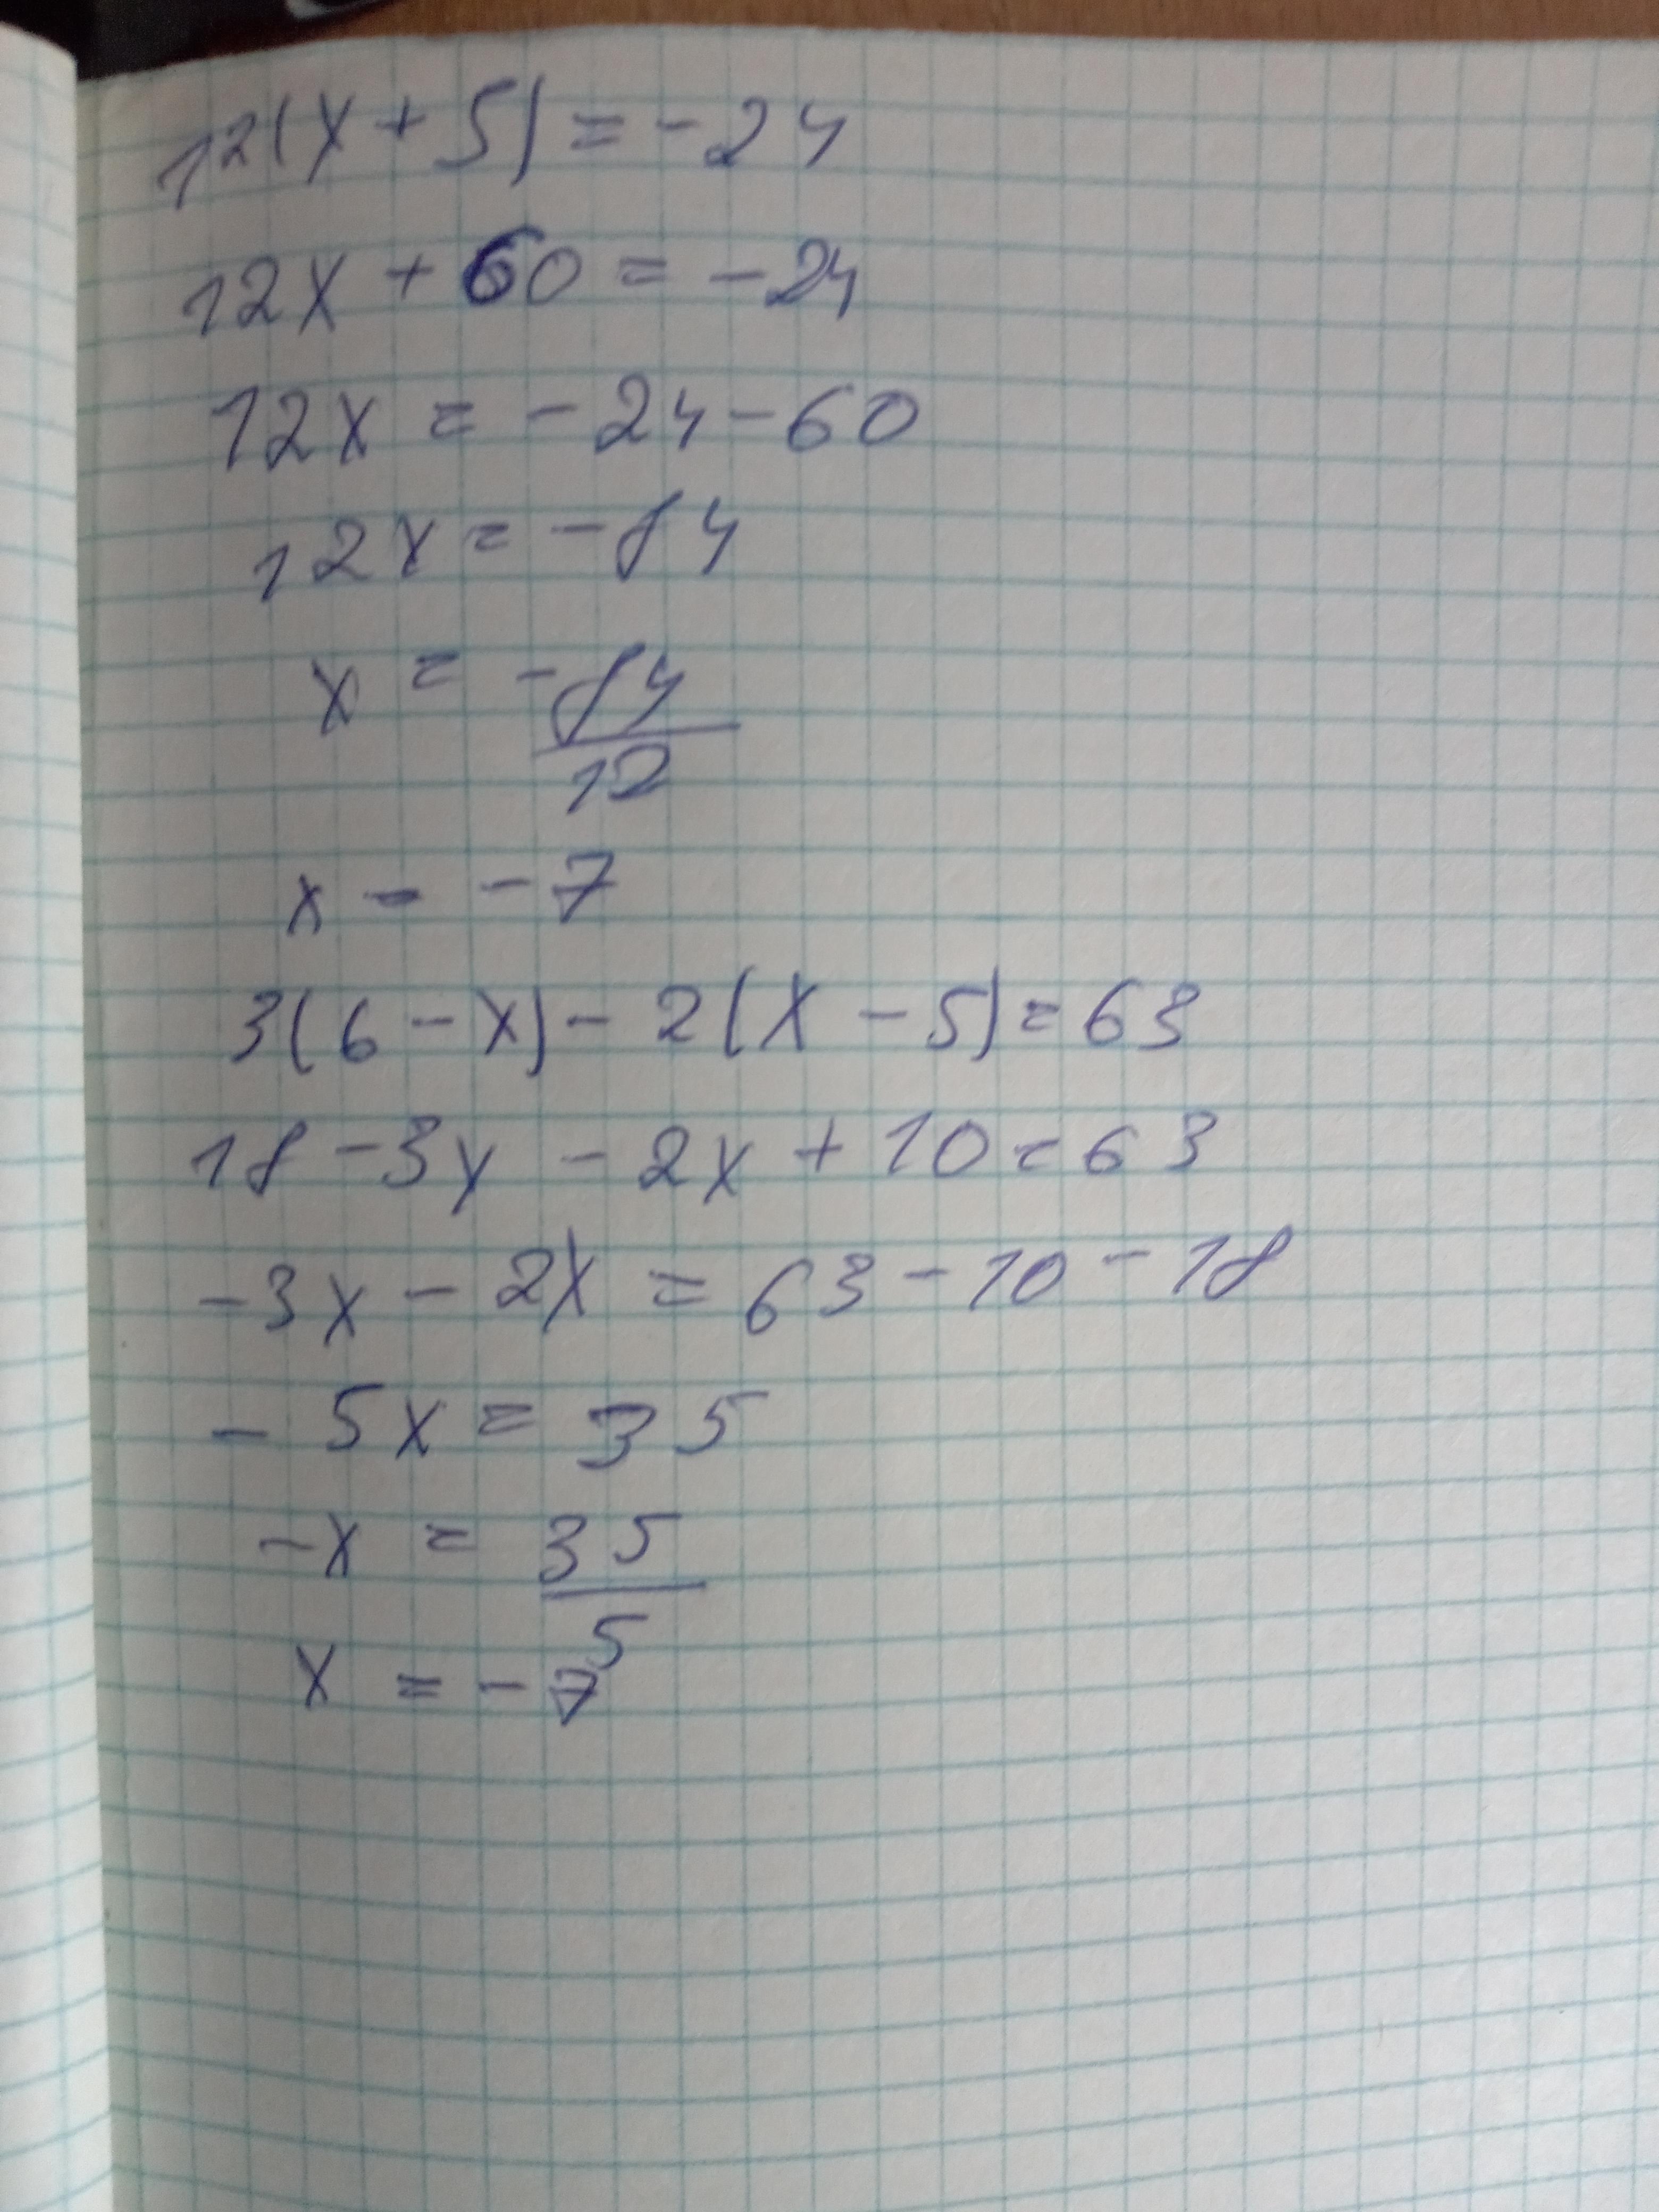 12(x+5)=-24
12x+60=-24
12x=-24-60
12x=-84
x=-84/12
x--7
3(6-x)-2(x-5)=63
18-3x-2x+10=63
-3x-2x=63-10-18
-5x=35
-x=35/5
x=-7